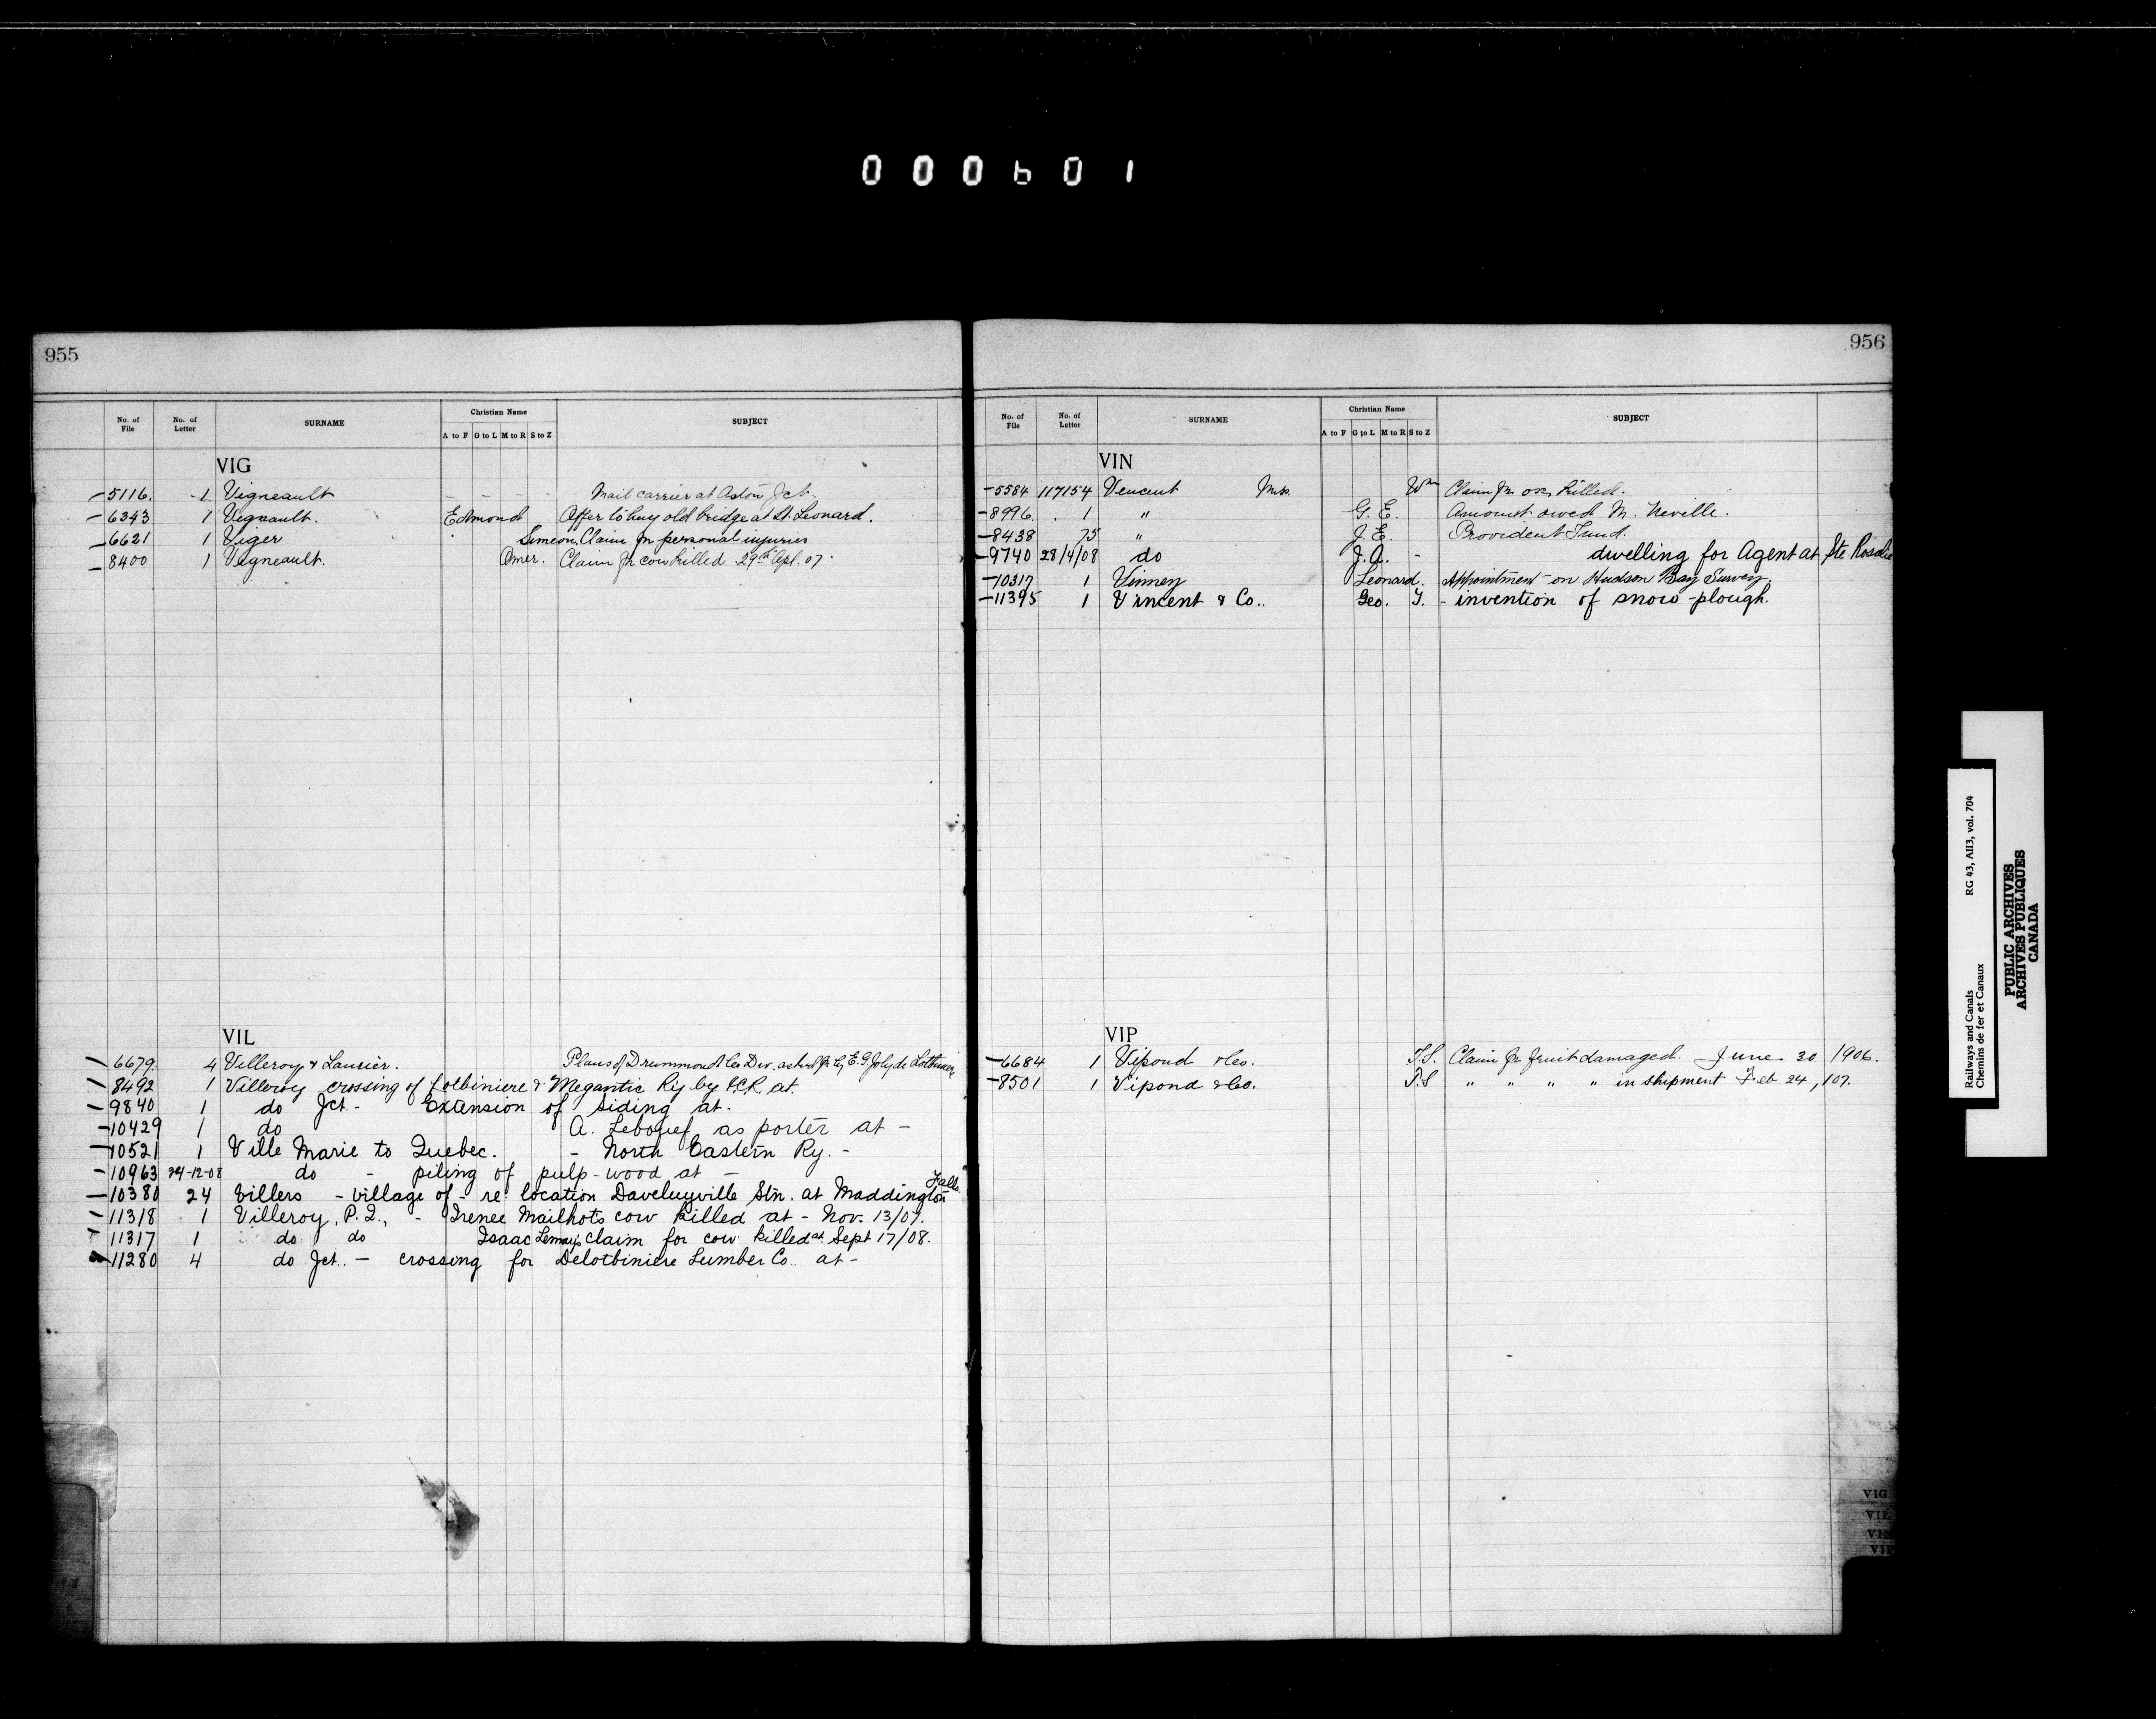 000601
955
No. of File No. of Letter SURNAME Christian Name A to F G to L M to R S to Z SUBJECT
VIG
5116. 1 Vigneault - - - - Mail carrier at Aston Jct.
6343 1 Vignault. Edmond Offer to buy old bridge at St. Leonard.
6621 1 Viger Simeon, Claim for personal injuries
8400 1 Vigneault. Omer. Claim for cow killed 29th Apl. 07.
VIL
6679. 4 Villeroy & Laurier. Plans of Drummond Co Div. asked for by E.G. Joly de Lotbiniere
8492 1 Villeroy crossing of Lotbiniere & Megantic Ry by I.C.R. at.
9840 1 do Jct. - Extension of siding at.
10429 1 do A. Leboeuf as porter at -
10521 1 Ville Marie to Quebec. - North Eastern Ry. -
10963 24-12-08 do - piling of pulp-wood at -
10380 24 Villers - village of - re location Daveluyville Stn. at Maddington Falls
11318 1 Villeroy, P.Q., - Irenee Mailhot's cow killed at - Nov. 13/07.
11317 1 do do Isaac Lemay's claim for cow killed at Sept 17/08.
11280 4 do Jct. - crossing for Delotbiniere Lumber Co. at -
956
No. of File No. of Letter SURNAME Christian Name A to F G to L M to R S to Z SUBJECT
VIN
5584 117154 Vincent Mrs. Wm Claim for ox killed.
8996. 1 " G. E. Amount owed M. Neville.
8438 75 " J. E. Provident Fund.
9740 28/4/08 do J. A. - dwelling for Agent at Ste Rosalie
10317 1 Vinney Leonard. Appointment on Hudson Bay Survey.
11395 1 Vincent & Co.. Geo. T. - invention of snow-plough.
VIP
6684 1 Vipond & Co. T.S. Claim for fruit damaged. June 30 1906.
8501 1 Vipond & Co. T.S " " " " in shipment Feb 24, 07.
VIG
VIL
VIN
VIP
Railways and Canals RG 43, AII3, vol. 704
Chemins de fer et Canaux
PUBLIC ARCHIVES
ARCHIVES PUBLIQUES
CANADA